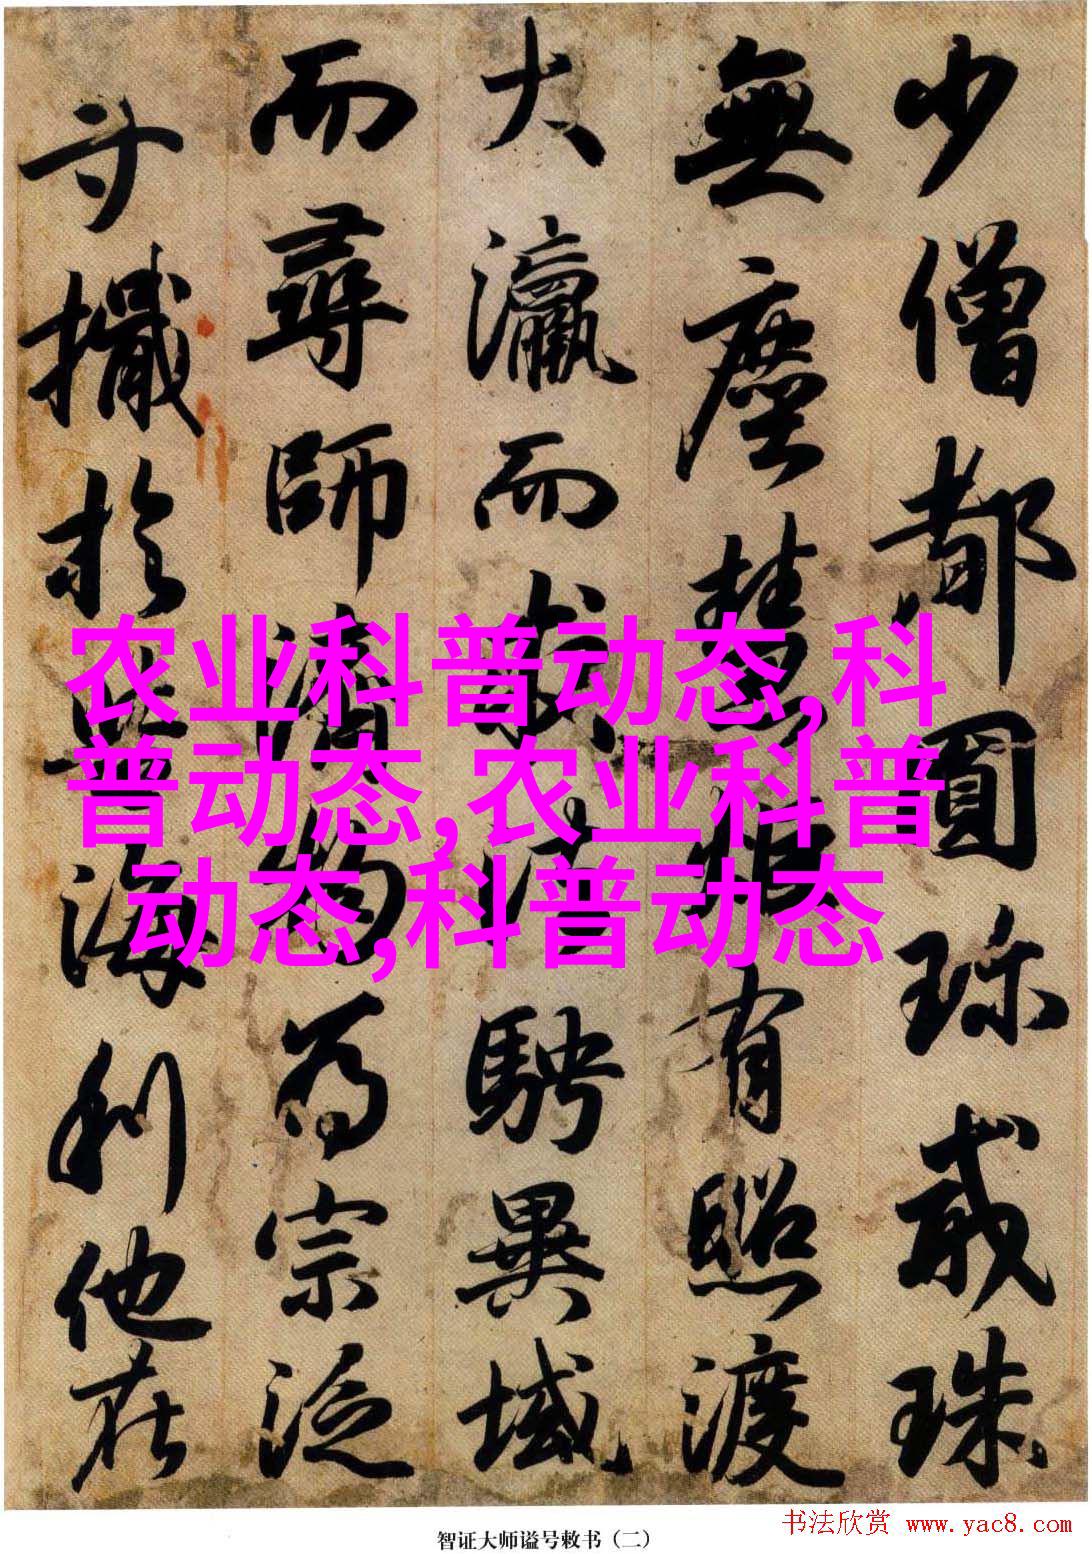 少僧都圓珍戒珠
無塵慧根有照渡
大瀛而求法騁異域
而尋師濟物為宗泛
寸檝於巨海利他在
农业科普动态,科
普动态,农业科普
动态,科普动态
智证大师谥号敕书（二）
书法欣赏 www.yac8.com